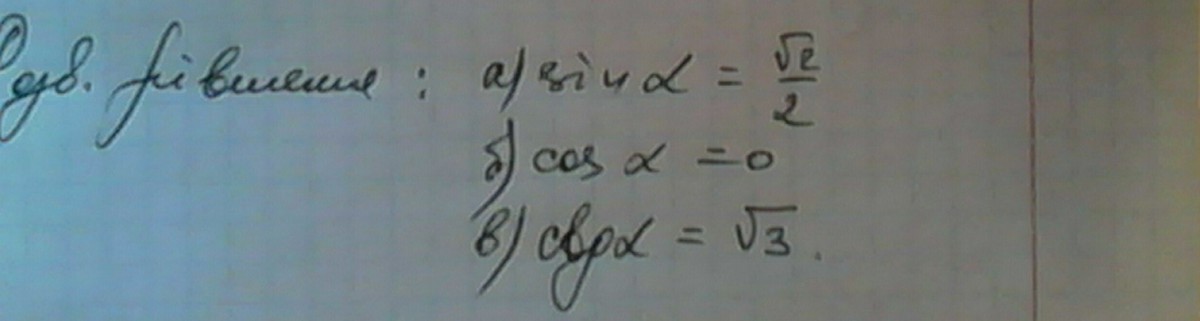 рівняння : а) sin α = √2/2
б) cos α = 0
в) ctg α = √3.